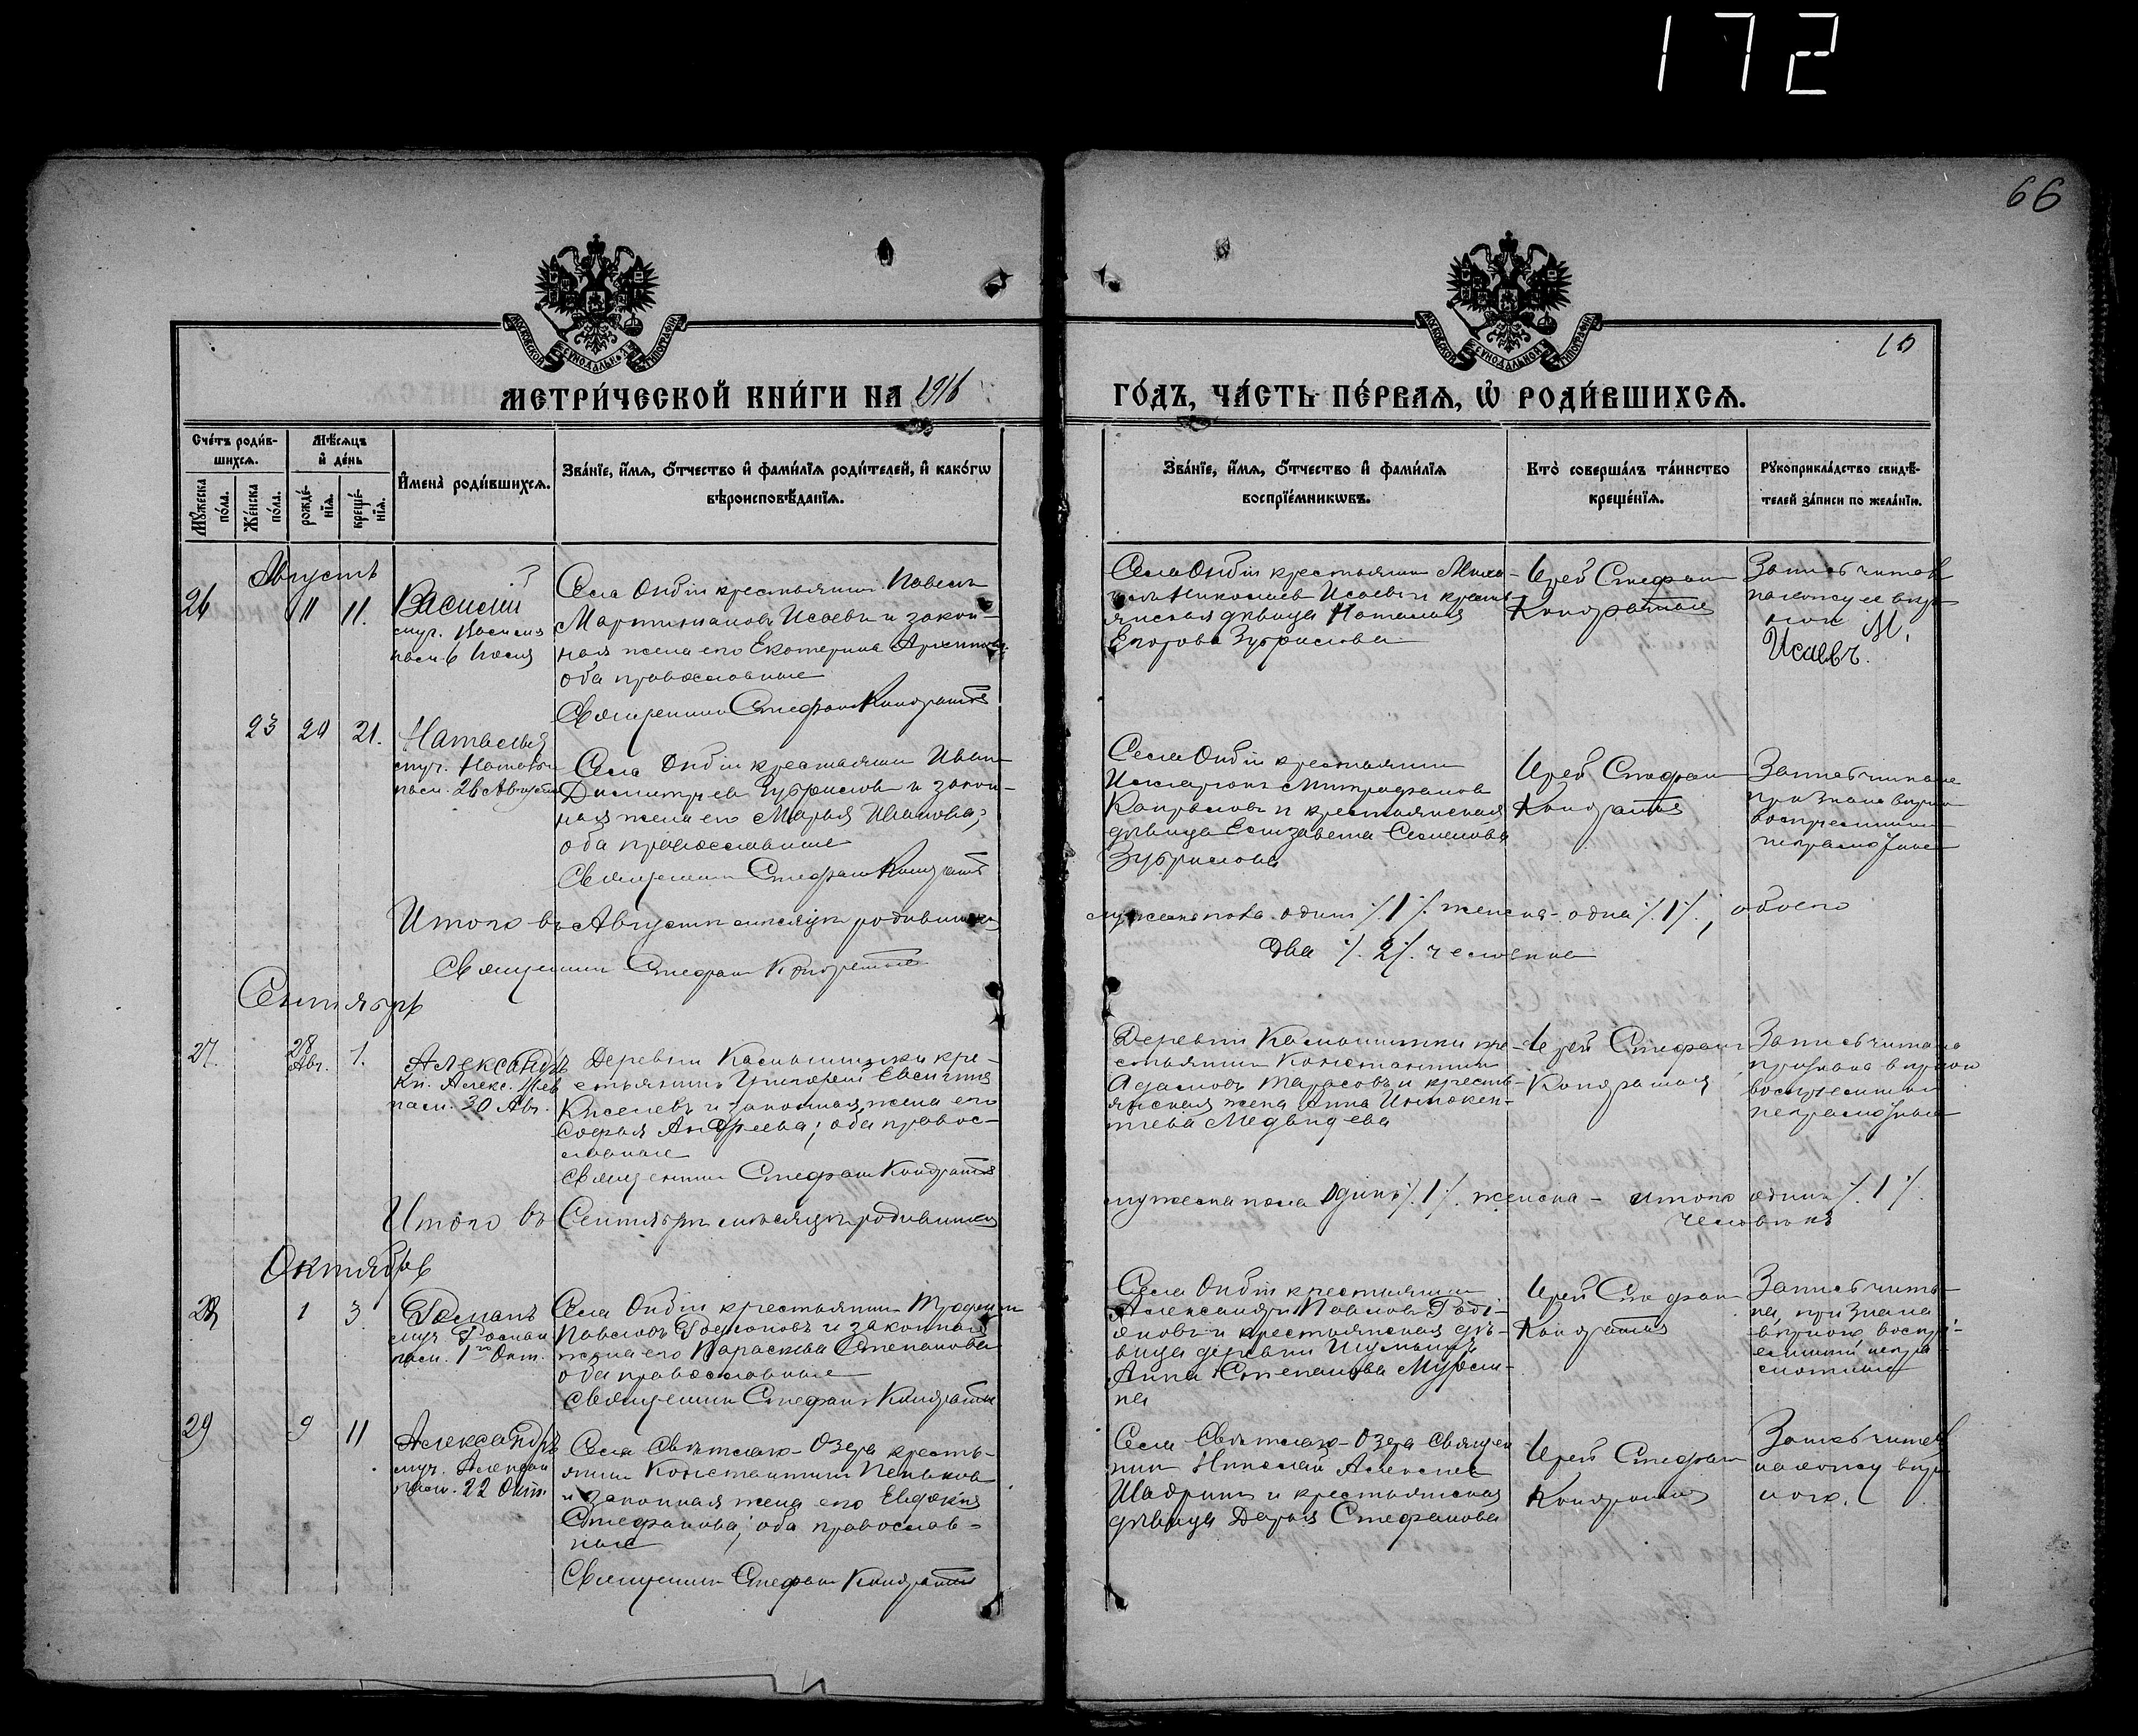 172
66
10
МОСКОВСКОЙ СѴНОДАЛЬНОЙ ТИПОГРАФІИ
МОСКОВСКОЙ СѴНОДАЛЬНОЙ ТИПОГРАФІИ
МЕТРИ́ЧЕСКОЙ КНИ́ГИ НА 1916
ГО́ДЪ, ЧА́СТЬ ПЕ́РВАЯ, Ѡ҆ РОДИ́ВШИХСЯ.
Сче́тъ роди́в-
шихся.
Мѣ́сяцъ
и҆ де́нь
Мꙋ́жеска
по́ла.
Же́нска
по́ла.
рожде́-
нїя.
креще́-
нїя.
И҆мена̀ роди́вшихся.
Зва́нїе, и҆́мя, ѻ҆́тчество и҆ фами́лїя роди́телей, и҆ како́гѡ
вѣроисповѣ́данїя.
Зва́нїе, и҆́мя, ѻ҆́тчество и҆ фами́лїя
воспрїе́мникѡвъ.
Кто̀ соверша́лъ та́инство
креще́нїя.
Рꙋкоприкла́дство свидѣ́-
телей за́писи по жела́нїю.
Августъ
26 11 11.
Василій
муч. Василія
Села Онбіи крестьянинъ Павелъ
Мартиніановъ Исаевъ и закон-
ная жена его Екатерина Архипова;
оба православные
Священникъ Стефанъ Кондратьевъ
Села Онбіи крестьянинъ Миха-
илъ Николаевъ Исаевъ и кресть-
янская дѣвица Наталія
Егорова Зубрилова
Іерей Стефанъ
Кондратьевъ
Запись читалъ
нахожу ее вѣр-
ною М.
Исаевъ.
23 20 21.
Наталья
муч. Наталіи
пам. 26 Августа
Села Онбіи крестьянинъ Иванъ
Димитріевъ Зубриловъ и закон-
ная жена его Марья Иванова;
оба православные
Священникъ Стефанъ Кондратьевъ
Села Онбіи крестьянинъ
Митрофановъ
и крестьянская
дѣвица Елизавета Семенова
Зубрилова
Іерей Стефанъ
Кондратьевъ
Запись читана
признана вѣрною
воспріемники
неграмотные
Итого въ Августѣ мѣсяцѣ родившихся
мужеска пола одинъ /.1/. женска - одна /.1/.; обоего
два /.2/. человѣка
Священникъ Стефанъ Кондратьевъ
Сентябрь
27. 28
Авг. 1.
Александръ
кн. Алекс. Нев.
пам. 30 Авг.
Деревни кре-
стьянинъ Григорій
Киселевъ и законная жена его
Софья Андреева; оба правос-
лавные
Священникъ Стефанъ Кондратьевъ
Деревни кре-
стьянинъ Константинъ
Адамовъ Тарасовъ и кресть-
янская жена Анна Иннокен-
тьева Медвидева
Іерей Стефанъ
Кондратьевъ
Запись читана
признана вѣрною
воспріемники
неграмотные
Итого въ Сентябрѣ мѣсяцѣ родившихся
мужеска пола одинъ /.1/. женска - итого одинъ /.1/.
человѣкъ
Октябрь
28 1 3
Романъ
муч. Роман
пам. 1го Окт.
Села Онбіи крестьянинъ Трофимъ
Павловъ Родіоновъ и законная
жена его Параскева Степанова
оба православные
Священникъ Стефанъ Кондратьевъ
Села Онбіи крестьянинъ
Александръ Павловъ Роді-
оновъ и крестьянская дѣ-
вица деревни
Анна Степанова
на
Іерей Стефанъ
Кондратьевъ
Запись чита-
на, признана
вѣрною воспрі-
емники негра-
мотные
29 9 11
Александръ
муч. Александ
пам. 22 Окт.
Села Свѣтлаго-Озера кресть-
янинъ Константинъ Пеньковъ
и законная жена его Евдокія
Стефанова; оба православ-
ные
Священникъ Стефанъ Кондратьевъ
Села Свѣтлаго-Озера священ
никъ Николай Алексѣевъ
Шадринъ и крестьянская
дѣвица Дарья Стефанова
Іерей Стефанъ
Кондратьевъ
Запись читалъ
нахожу вѣр-
ною.